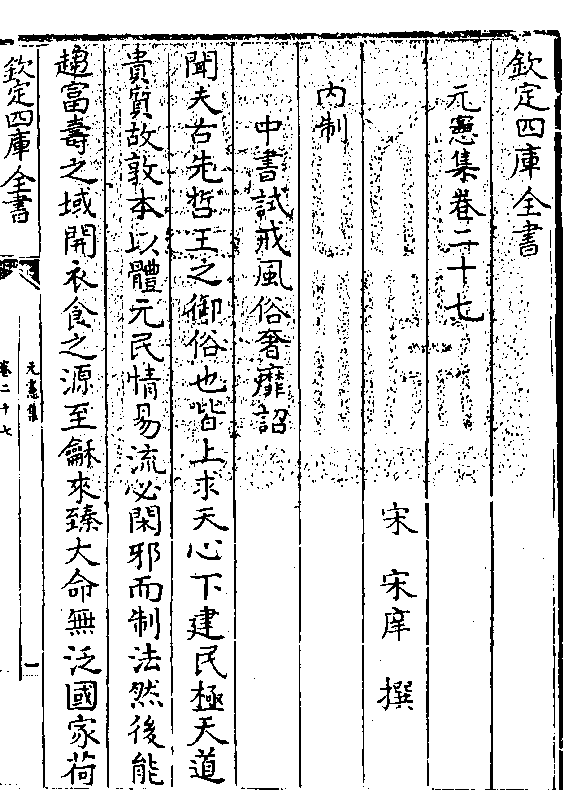 欽定四庫全書
元憲集卷二十七
宋 宋庠 撰
內制
中書試戒風俗奢靡詔
聞夫古先哲王之御俗也皆上求天心下建民極天道
貴質故敦本以體元民情易流必閑邪而制法然後能
趨富壽之域開衣食之源至龢來臻大命無泛國家荷
欽定四庫全書
元憲集
卷二十七
一